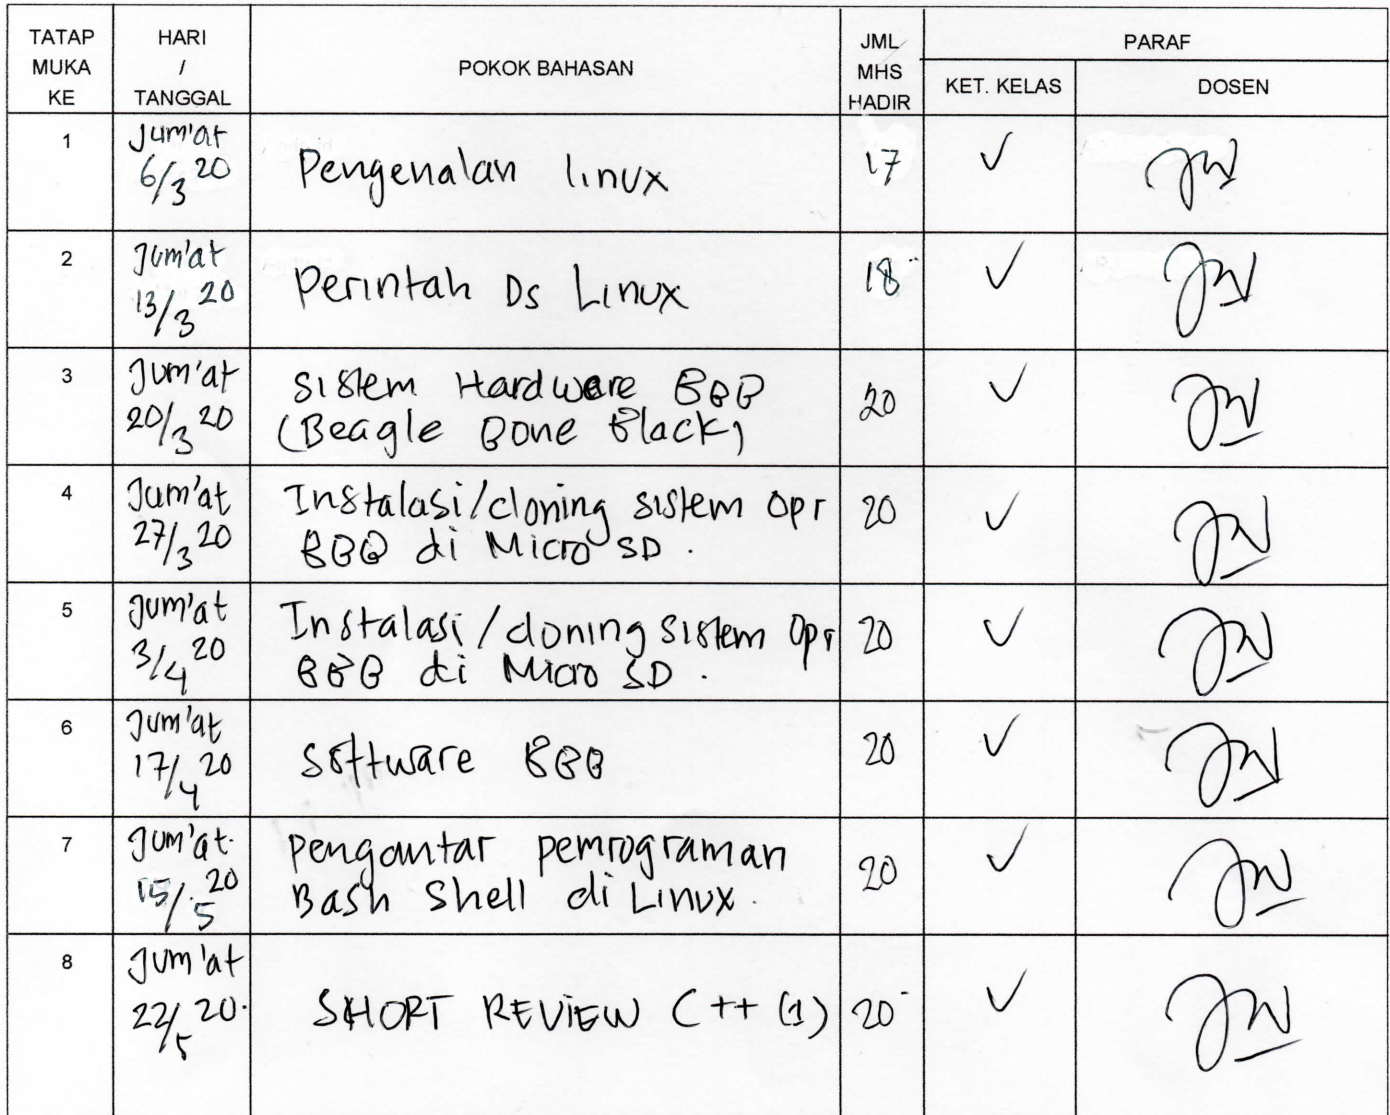 TATAP MUKA KE
HARI / TANGGAL
POKOK BAHASAN
JML MHS HADIR
PARAF
KET. KELAS
DOSEN
1
Jum'at
6/3 20
Pengenalan linux
17
✓
2
Jum'at
13/3 20
Perintah Ds Linux
18
✓
3
Jum'at
20/3 20
Sistem Hardware BBB
(Beagle Bone Black)
20
✓
4
Jum'at
27/3 20
Instalasi/cloning sistem opr
BBB di Micro SD.
20
✓
5
Jum'at
3/4 20
Instalasi/cloning sistem Opr
BBB di Micro SD.
20
✓
6
Jum'at
17/4 20
Software BBB
20
✓
7
Jum'at
15/5 20
Pengantar pemrograman
Bash Shell di Linux.
20
✓
8
Jum'at
22/5 20
SHORT REVIEW C++ (1)
20
✓